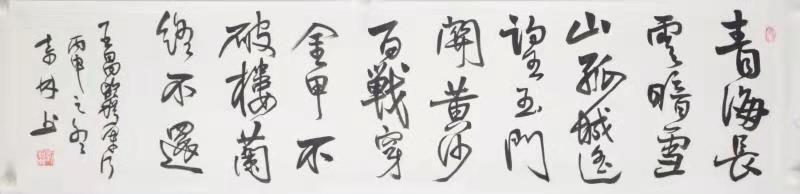 青海長
雲暗雪
山孤城遙
望玉門
關黃沙
百戰穿
金甲不
破樓蘭
終不還
王昌齡從軍行
丙申之冬